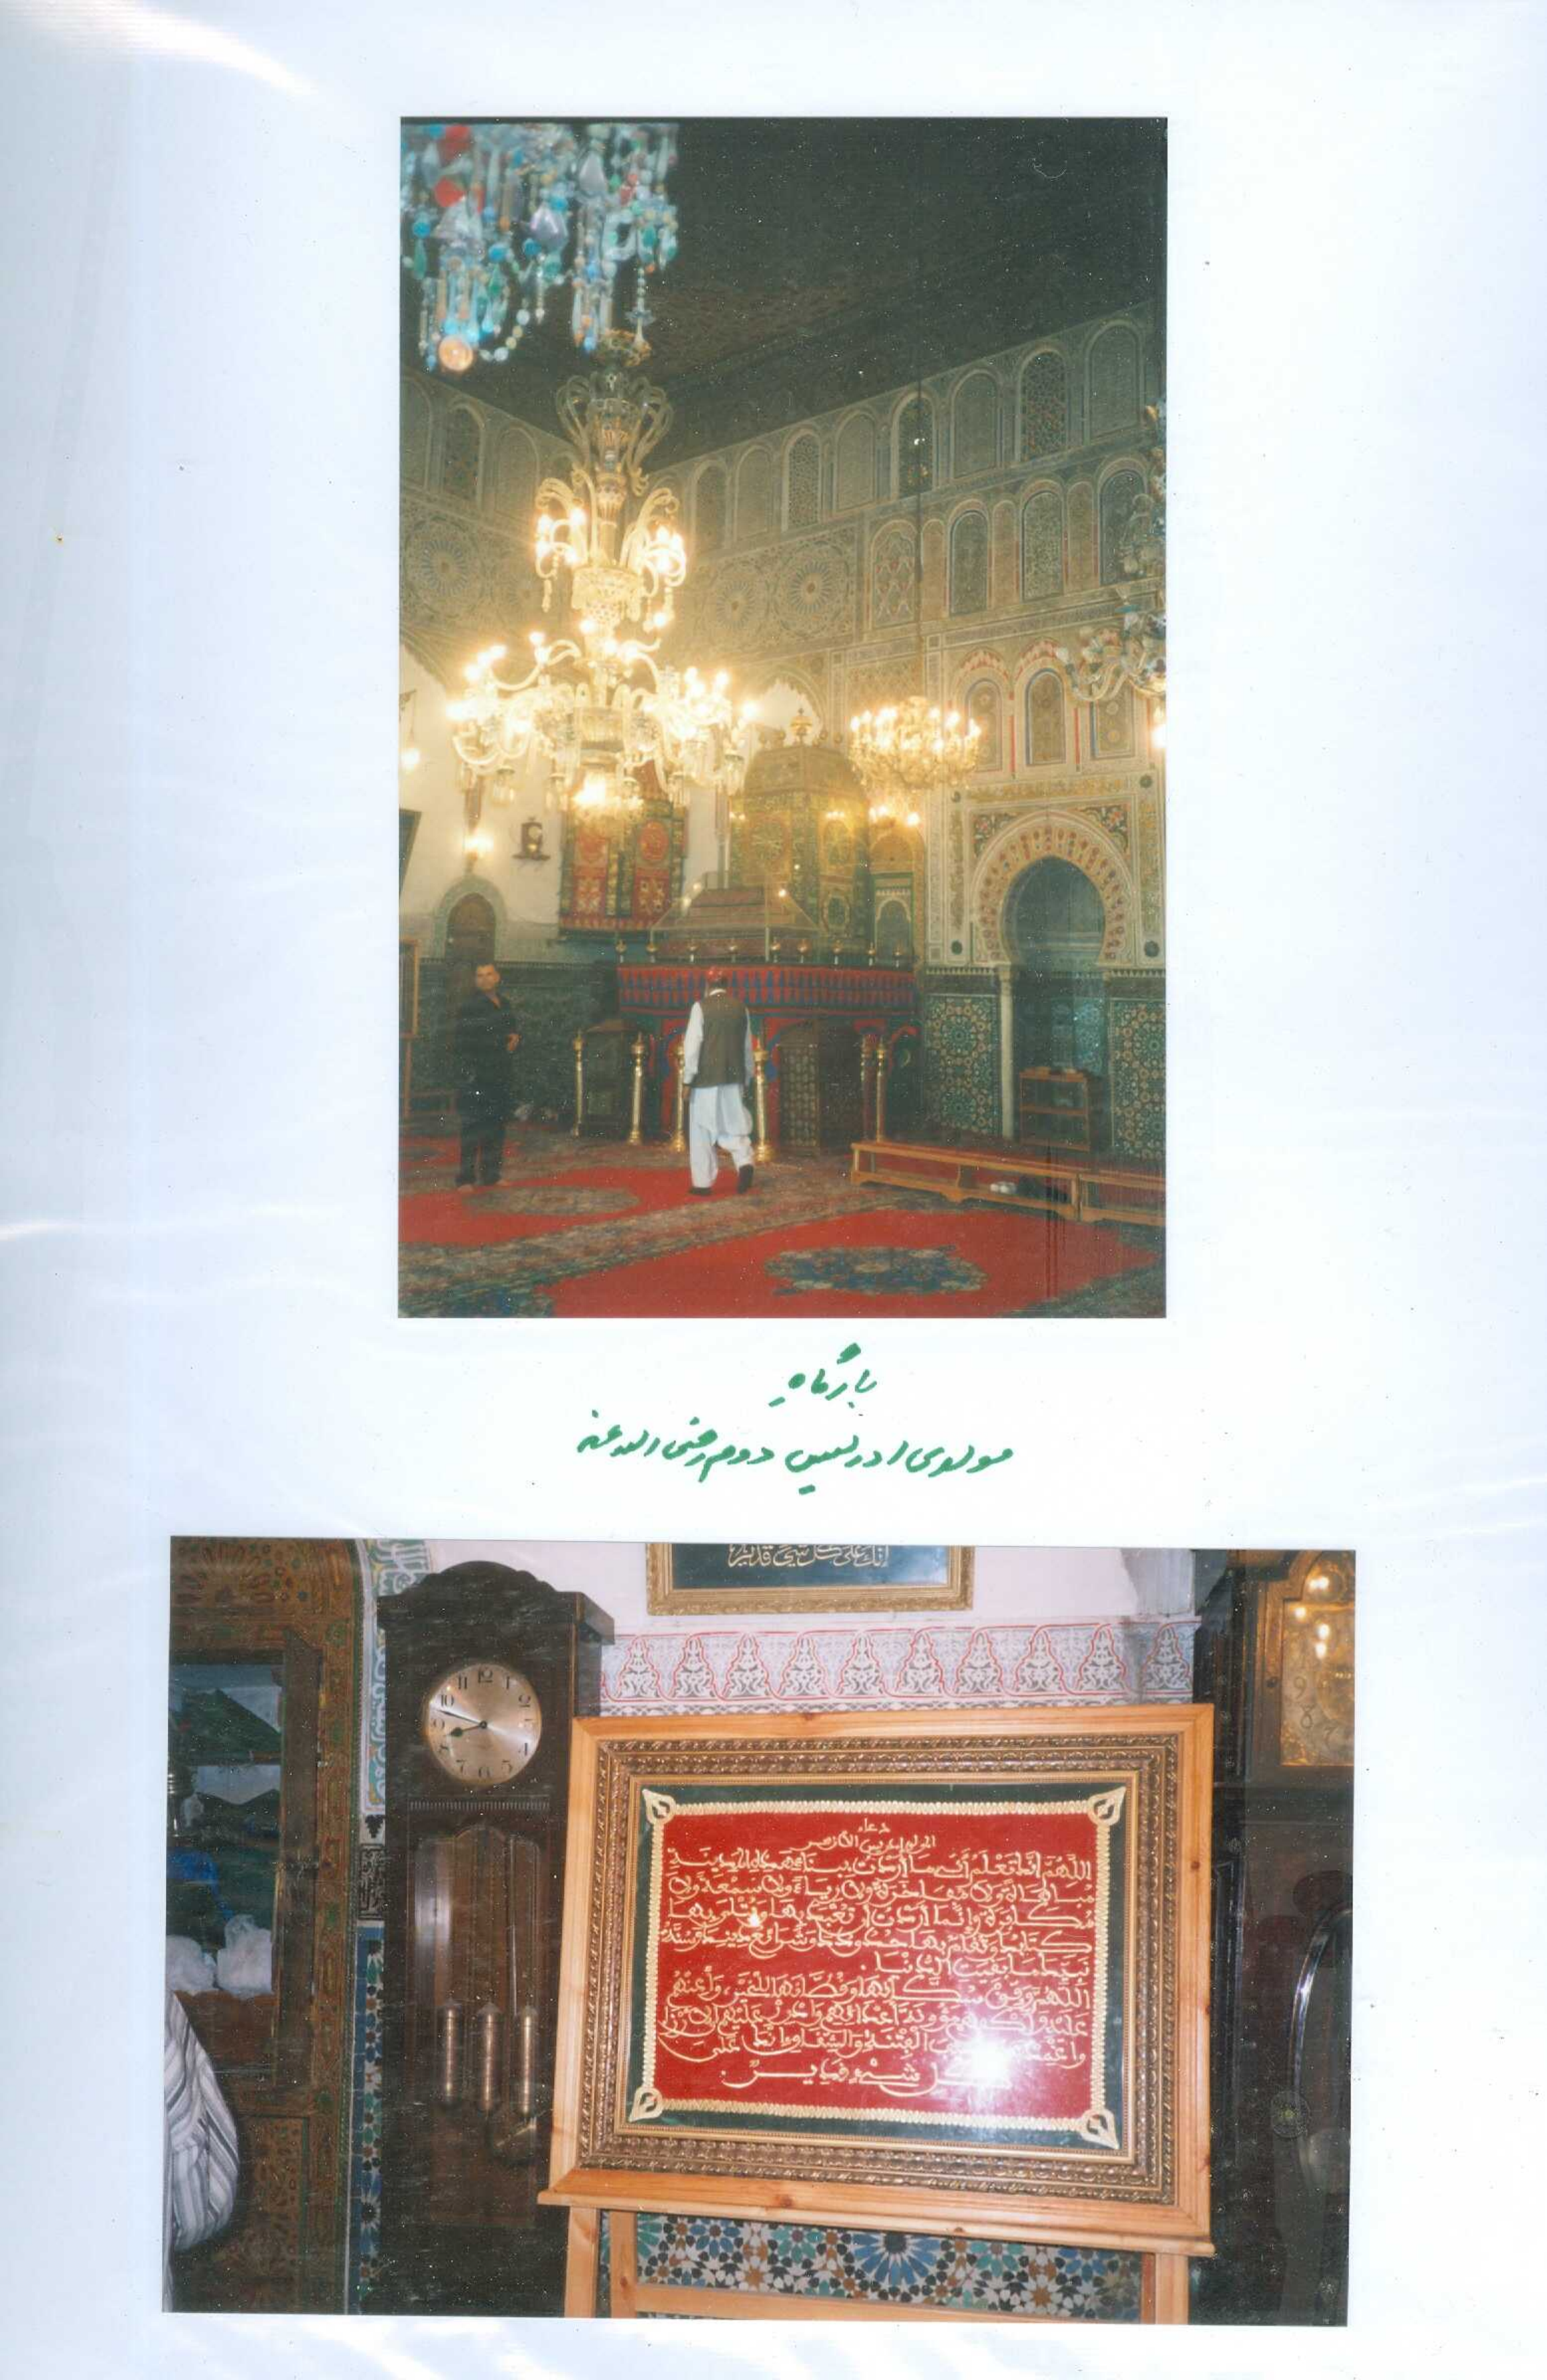 بارگاہِ
مولوی ادریس دوم رضی اللہ عنہ
إنك على كل شيء قدير
دعاء
المولى إدريس الأزهر
اللهم إنك تعلم أني ما أردت ببناء هذه المدينة
مباهاة ولا مفاخرة ولا رياء ولا سمعة ولا
مكابرة وإنما أردت أن تعبد بها ويتلى بها
كتابك وتقام بها حدودك وشرائع دينك وسنة
نبيك ما بقيت الدنيا .
اللهم وفق سكانها وقطانها للخير، وأعنهم
عليه واكفهم مؤونة أعدائهم وأدرر عليهم الأرزاق
الفتنة والشقاق إنك على
كل شيء قدير .
11 12
10 2
9
8 4
7 6 5
9
8